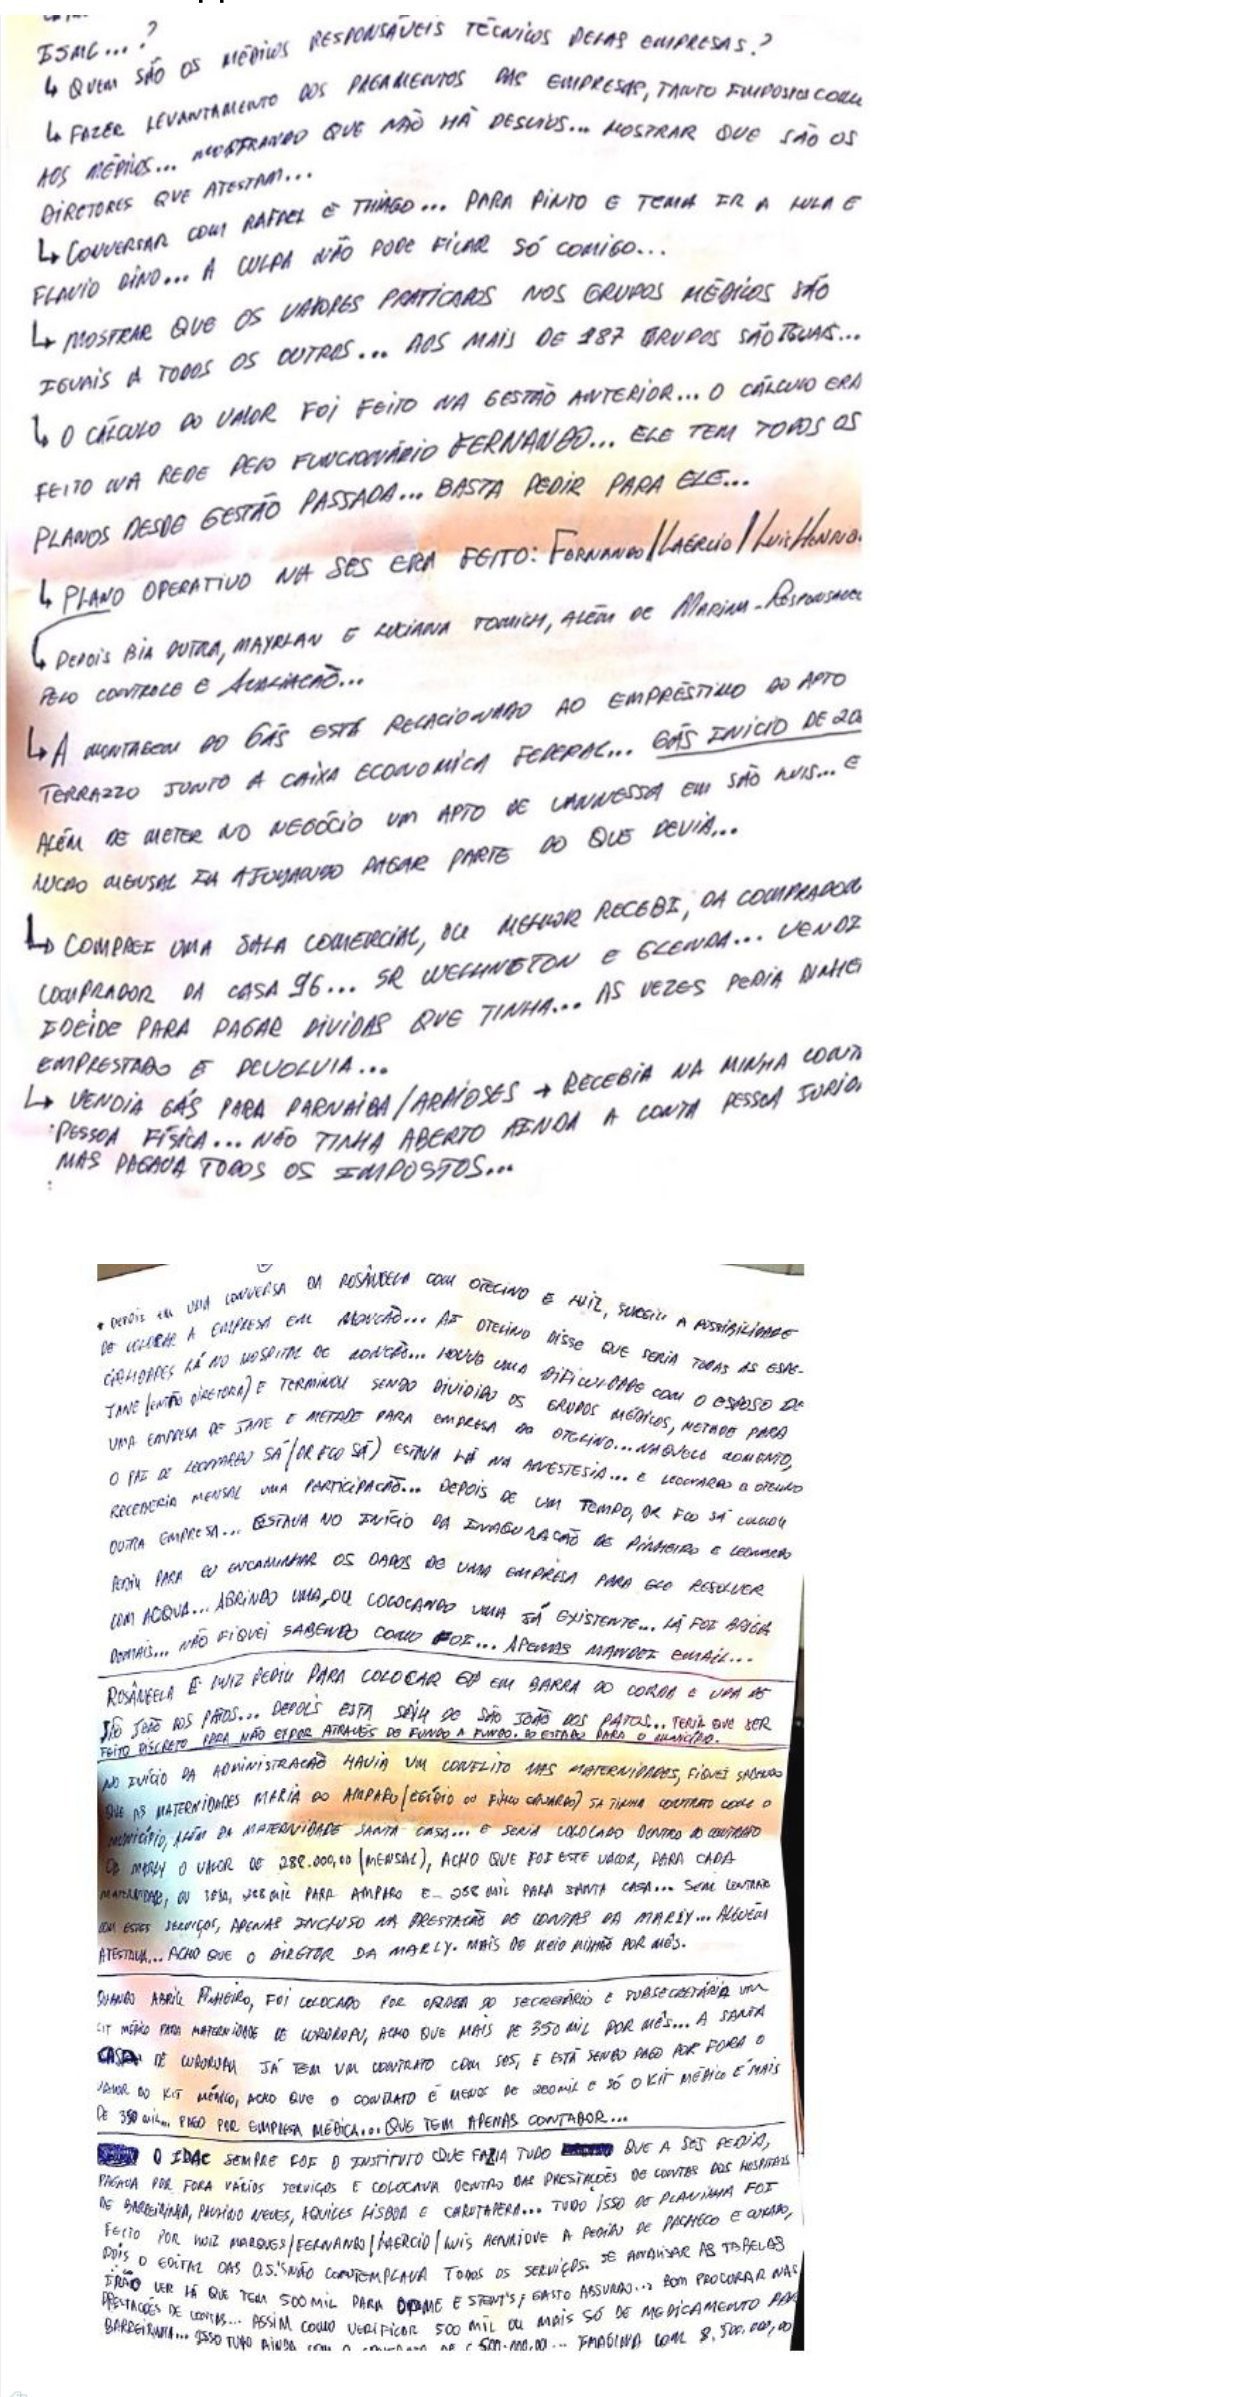 ISMC...?
↳ QUEM SÃO OS MÉDICOS RESPONSÁVEIS TÉCNICOS DELAS EMPRESAS?
↳ FAZER LEVANTAMENTO DOS PAGAMENTOS DAS EMPRESAS, TANTO IMPOSTOS COMO
AOS MÉDICOS... MOSTRANDO QUE NÃO HÁ DESVIOS... MOSTRAR QUE SÃO OS
DIRETORES QUE ATESTAM...
↳ CONVERSAR COM RAFAEL E THIAGO... PARA PINTO E TEMA IR A LULA E
FLAVIO DINO... A CULPA NÃO PODE FICAR SÓ COMIGO...
↳ MOSTRAR QUE OS VALORES PRATICADOS NOS GRUPOS MÉDICOS SÃO
IGUAIS A TODOS OS OUTROS... AOS MAIS DE 187 GRUPOS SÃO IGUAIS...
↳ O CÁLCULO DO VALOR FOI FEITO NA GESTÃO ANTERIOR... O CÁLCULO ERA
FEITO NA REDE PELO FUNCIONÁRIO FERNANDO... ELE TEM TODOS OS
PLANOS DESDE GESTÃO PASSADA... BASTA PEDIR PARA ELE...
↳ PLANO OPERATIVO NA SES ERA FEITO: FERNANDO/LAÉRCIO/
↳ DEPOIS BIA DUTRA, MAYRLAN E LUCIANA TOMICH, ALÉM DE
PELO CONTROLE E AVALIACÃO...
↳ A MONTAGEM DO GÁS ESTÁ RELACIONADO AO EMPRÉSTIMO DO APTO
TERRAZZO JUNTO A CAIXA ECONOMICA FEDERAL... GÁS INICIO DE 20
ALÉM DE METER NO NEGÓCIO UM APTO DE VANNESSA EM SÃO LUIS... E
LUCRO MENSAL IA AJUDANDO PAGAR PARTE DO QUE DEVIA...
↳ COMPREI UMA SALA COMERCIAL, OU MELHOR RECEBI, DA COMPRADOR
COMPRADOR DA CASA 96... SR WELLINGTON E GLENDA... VENDI
IDEIDE PARA PAGAR DIVIDAS QUE TINHA... AS VEZES PEDIA DINHEI
EMPRESTADO E DEVOLVIA...
↳ VENDIA GÁS PARA PARNAÍBA/ARAÍOSES → RECEBIA NA MINHA CONTA
PESSOA FÍSICA... NÃO TINHA ABERTO AINDA A CONTA PESSOA JURID
MAS PAGAVA TODOS OS IMPOSTOS...
• DEPOIS EM UMA CONVERSA DA ROSÂNGELA COM OTELINO E LUIZ, SURGIU A POSSIBILIDADE
DE COLOCAR A EMPRESA EM MONCÃO... AI OTELINO DISSE QUE SERIA TODAS AS ESPE-
CIALIDADES LÁ NO HOSPITAL DE MONCÃO... HOUVE UMA DIFICULDADE COM O ESPOSO DE
JANE (ENTÃO DIRETORA) E TERMINOU SENDO DIVIDIDO OS GRUPOS MÉDICOS, METADE PARA
UMA EMPRESA DE JANE E METADE PARA EMPRESA DO OTELINO... NAQUELE MOMENTO,
O PAI DE LEONARDO SÁ (DR FCO SÁ) ESTAVA LÁ NA ANESTESIA... E LEONARDO E OTELINO
RECEBERIA MENSAL UMA PARTICIPACÃO... DEPOIS DE UM TEMPO, DR FCO SÁ COLOCOU
OUTRA EMPRESA... ESTAVA NO INÍCIO DA INAGURACÃO DE PINHEIRO E LEONARDO
PEDIU PARA EU ENCAMINHAR OS DADOS DE UMA EMPRESA PARA ELE RESOLVER
COM ACQUA... ABRINDO UMA, OU COLOCANDO UMA JÁ EXISTENTE... LÁ FOI BRIGA
DEMAIS... NÃO FIQUEI SABENDO COMO FOI... APENAS MANDEI EMAIL...
ROSÂNGELA E LUIZ PEDIU PARA COLOCAR EM BARRA DO CORDA E UPA DE
SÃO JOÃO DOS PATOS... DEPOIS ESTA SAIU DE SÃO JOÃO DOS PATOS... TERIA QUE SER
FEITO DISCRETO PARA NÃO EXPOR ATRAVÉS DO FUNDO A FUNDO. DO ESTADO PARA O MUNICÍPIO.
NO INÍCIO DA ADMINISTRACÃO HAVIA UM CONFLITO NAS MATERNIDADES, FIQUEI SABENDO
QUE AS MATERNIDADES MARIA DO AMPARO JÁ TINHA CONTRATO COM O
MUNICÍPIO, ALÉM DA MATERNIDADE SANTA CASA... E SERIA COLOCADO DENTRO DO CONTRATO
DE MARLY O VALOR DE 288.000,00 (MENSAL), ACHO QUE FOI ESTE VALOR, PARA CADA
MATERNIDADE, OU SEJA, 288 MIL PARA AMPARO E 288 MIL PARA SANTA CASA... SEM CONTRATO
COM ESTES SERVIÇOS, APENAS INCLUSO NA PRESTACÃO DE CONTAS DA MARLY... ALGUÉM
ATESTAVA... ACHO QUE O DIRETOR DA MARLY. MAIS DE MEIO MILHÃO POR MÊS.
QUANDO ABRIU PINHEIRO, FOI COLOCADO POR ORDEM DO SECRETÁRIO E SUBSECRETÁRIA UM
KIT MÉDICO PARA MATERNIDADE DE CURURUPU, ACHO QUE MAIS DE 350 MIL POR MÊS... A SANTA
CASA DE CURURUPU JÁ TEM UM CONTRATO COM SES, E ESTÁ SENDO PAGO POR FORA O
VALOR DO KIT MÉDICO, ACHO QUE O CONTRATO É MENOS DE 200 MIL E SÓ O KIT MÉDICO É MAIS
DE 350 MIL... PAGO POR EMPRESA MÉDICA... QUE TEM APENAS CONTADOR...
O IDAC SEMPRE FOI O INSTITUTO QUE FAZIA TUDO QUE A SES PEDIA,
PAGAVA POR FORA VÁRIOS SERVIÇOS E COLOCAVA DENTRO DAS PRESTAÇÕES DE CONTAS DOS HOSPITAIS
DE BARREIRINHA, PAULINO NEVES, AQUILES LISBOA E CARUTAPERA... TUDO ISSO DE PLANILHA FOI
FEITO POR LUIZ MARQUES/FERNANDO/LAÉRCIO/LUIS HENRIQUE A PEDIDO DE PACHECO E
POIS O EDITAL DAS O.S.'S NÃO CONTEMPLAVA TODOS OS SERVIÇOS. SE ANALISAR AS TABELAS
IRÃO VER LÁ QUE TEM 500 MIL PARA OPME E STENT'S, GASTO ABSURDO... BOM PROCURAR NAS
PRESTAÇÕES DE CONTAS... ASSIM COMO VERIFICAR 500 MIL OU MAIS SÓ DE MEDICAMENTO PARA
BARREIRINHA... ISSO TUDO AINDA COM O IMAGINA COM 8.500.000,00